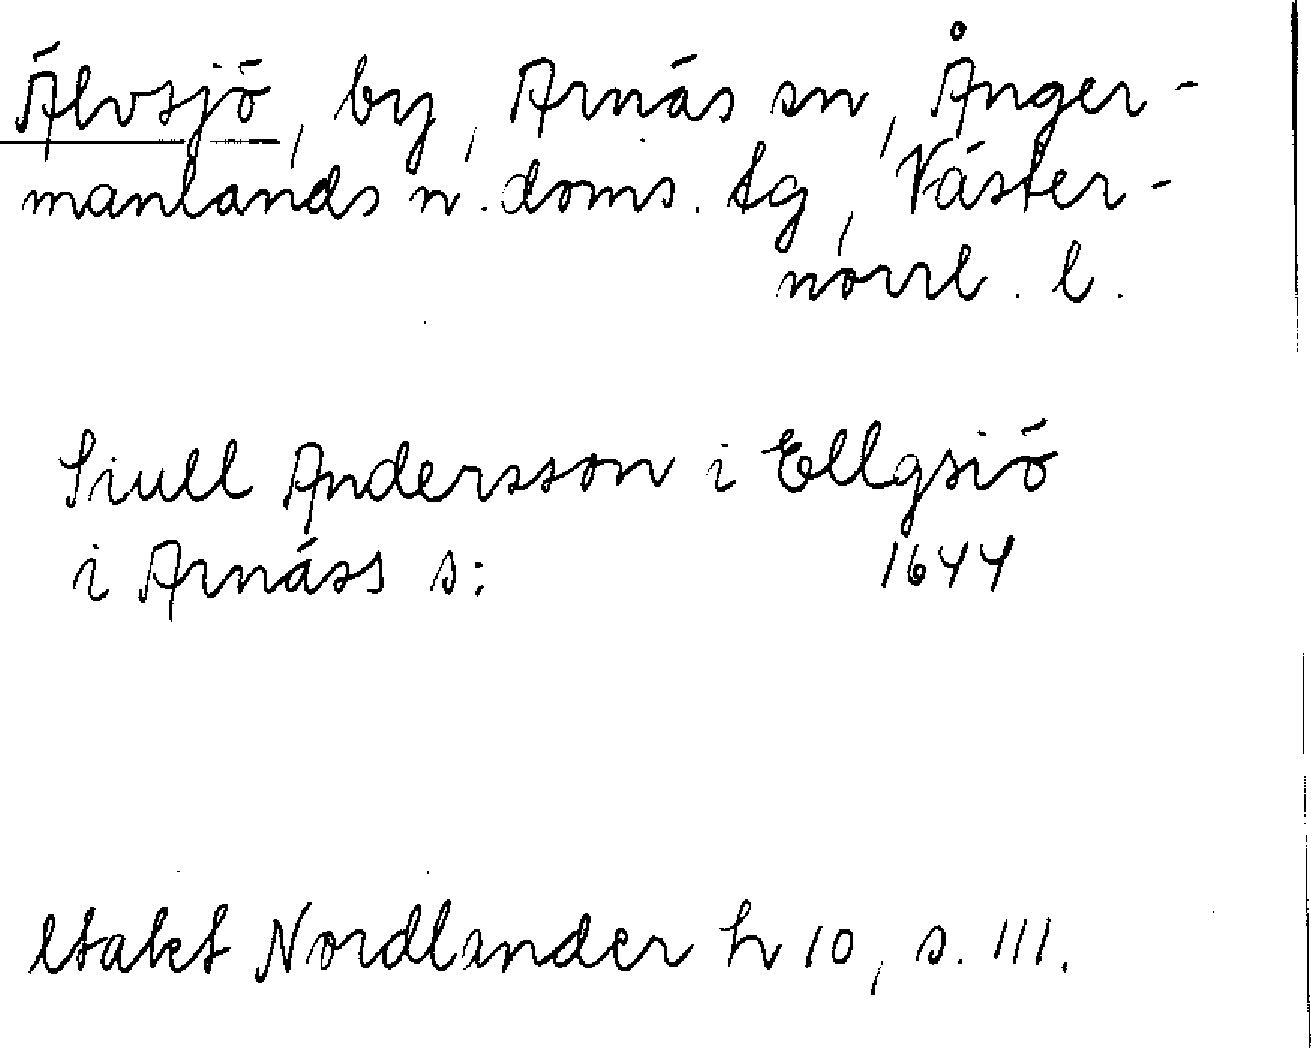 Älvsjö, by, Arnäs sn, Ånger-
manlands n. doms. tg, Väster-
norrl. l.
Siull Andersson i Ellgsiö
i Arnäss s: 1644
Nordlander h 10, s. 111.